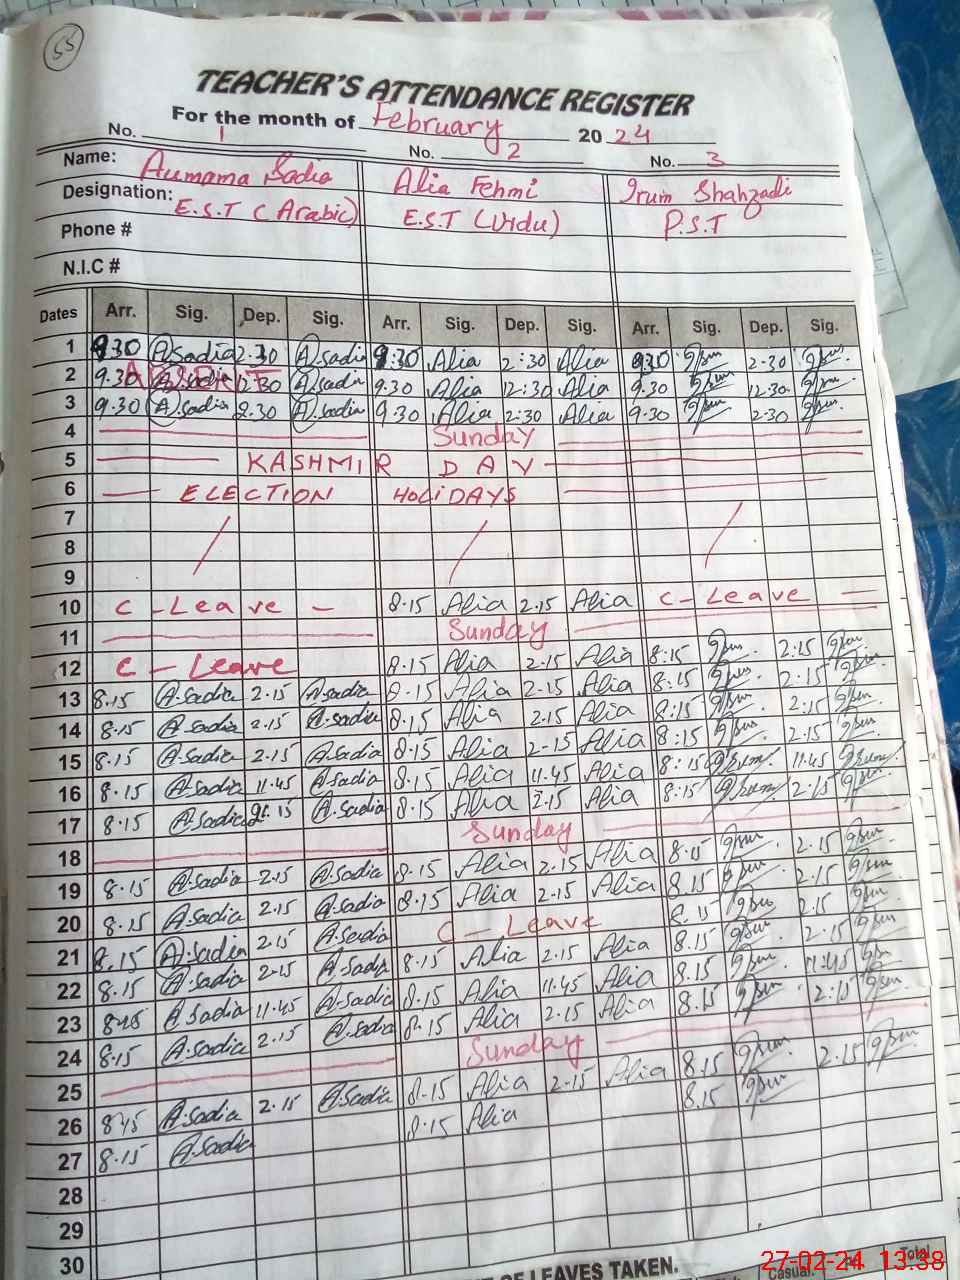 55
TEACHER'S ATTENDANCE REGISTER
For the month of February 2024
No. 1 No. 2 No. 3
Name: Aumama Sadia Alia Fehmi Irum Shahzadi
Designation: E.S.T (Arabic) E.S.T (Urdu) P.S.T
Phone #
N.I.C #
Dates Arr. Sig. Dep. Sig. Arr. Sig. Dep. Sig. Arr. Sig. Dep. Sig.
1 9.30 A.sadia 2.30 A.sadia 9:30 Alia 2:30 Alia 9.30 2-30
2 9.30 12.30 A.sadia 9.30 Alia 12:30 Alia 9.30 12.30
3 9.30 A.sadia 2.30 A.sadia 9.30 Alia 2:30 Alia 9.30 2.30
4 Sunday
5 KASHMIR DAY
6 ELECTION HOLIDAYS
7
8
9
10 C - Leave - 8.15 Alia 2.15 Alia C - Leave
11 Sunday
12 C - Leave 8.15 Alia 2.15 Alia 8:15 2:15
13 8.15 A.sadia 2.15 A.sadia 8.15 Alia 2.15 Alia 8:15 2.15
14 8.15 A.sadia 2.15 A.sadia 8.15 Alia 2.15 Alia 8:15 2.15
15 8.15 A.sadia 2.15 A.sadia 8.15 Alia 2-15 Alia 8.15 2.15
16 8.15 A.sadia 11.45 A.sadia 8.15 Alia 11.45 Alia 8:15 11.45
17 8.15 A.sadia 2.15 A.sadia 8.15 Alia 2.15 Alia 8.15 2.15
18 Sunday
19 8.15 A.sadia 2.15 A.sadia 8.15 Alia 2.15 Alia 8.15 2.15
20 8.15 A.sadia 2.15 A.sadia 8.15 Alia 2.15 Alia 8.15 2.15
21 8.15 A.sadia 2.15 A.sadia C - Leave 8.15 2.15
22 8.15 A.sadia 2.15 A.sadia 8.15 Alia 2.15 Alia 8.15 2.15
23 8.15 A.sadia 11.45 A.sadia 8.15 Alia 11.45 Alia 8.15 11:45
24 8.15 A.sadia 2.15 A.sadia 8.15 Alia 2.15 Alia 8.15 2.15
25 Sunday
26 8.15 A.sadia 2.15 A.sadia 8.15 Alia 2.15 Alia 8.15 2.15
27 8.15 A.sadia 8.15 Alia 8.15
28
29
30
OF LEAVES TAKEN. Casual. Total
27-02-24 13:38